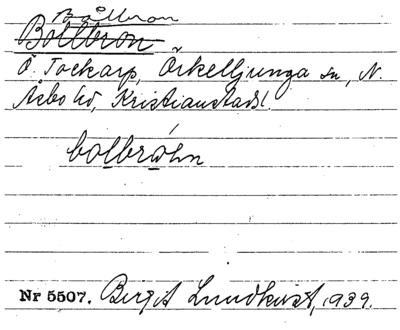 Bålbron
Bolbron
Ö. Tockarp, Örkelljunga sn, N.
Åsbo hd, Kristianstads l.
bolbrøhn
Nr 5507. Birgit Lundkvist, 1939.